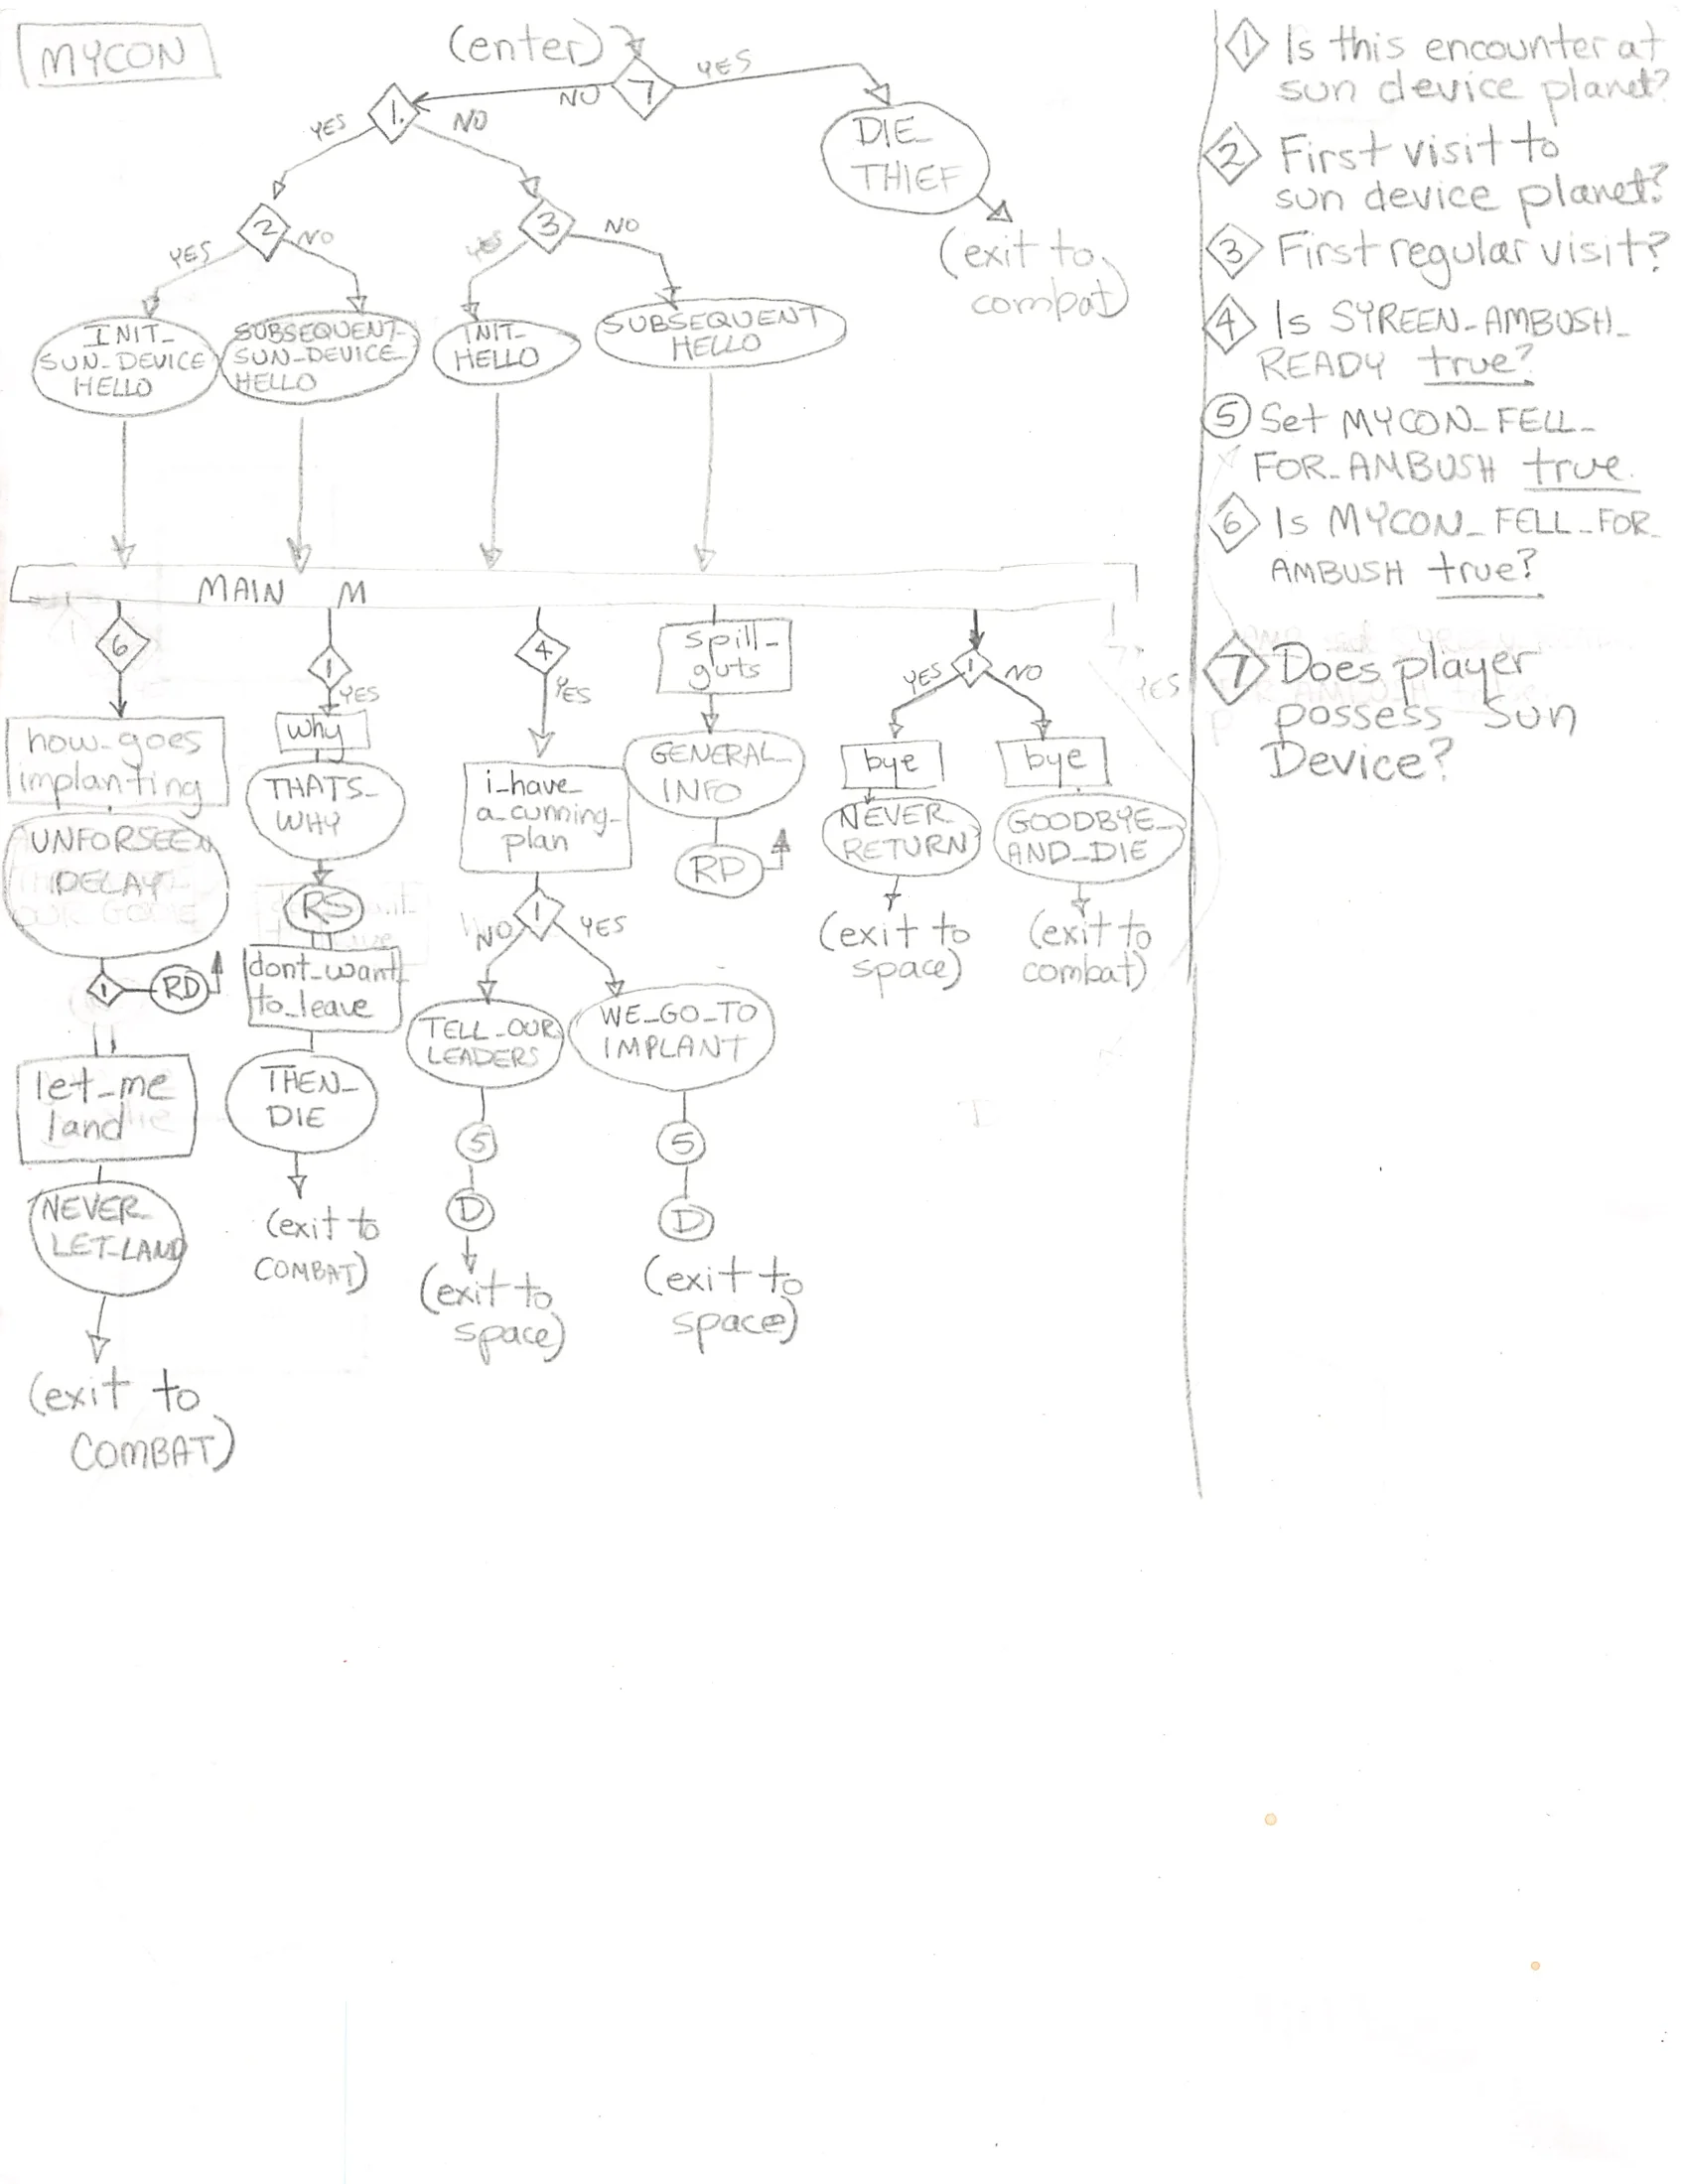 MYCON
(enter)
7
YES
NO
1.
YES
NO
DIE_
THIEF
(exit to
combat)
2
YES
NO
3
YES
NO
INIT_
SUN_DEVICE
HELLO
SUBSEQUENT_
SUN_DEVICE_
HELLO
INIT_
HELLO
SUBSEQUENT
HELLO
MAIN M
6
how_goes
implanting
UNFORSEEN
DELAY
1
RD
let_me
land
NEVER_
LET_LAND
(exit to
COMBAT)
1
YES
why
THATS_
WHY
RS
dont_want_
to_leave
THEN_
DIE
(exit to
COMBAT)
4
YES
i_have_
a_cunning_
plan
1
NO
YES
TELL_OUR
LEADERS
5
D
(exit to
space)
WE_GO_TO
IMPLANT
5
D
(exit to
space)
spill_
guts
GENERAL_
INFO
RD
1
YES
NO
bye
NEVER_
RETURN
(exit to
space)
bye
GOODBYE_
AND_DIE
(exit to
combat)
YES
1 Is this encounter at
sun device planet?
2 First visit to
sun device planet?
3 First regular visit?
4 Is SYREEN_AMBUSH_
READY true?
5 Set MYCON_FELL_
FOR_AMBUSH true.
6 Is MYCON_FELL_FOR_
AMBUSH true?
7 Does player
possess Sun
Device?